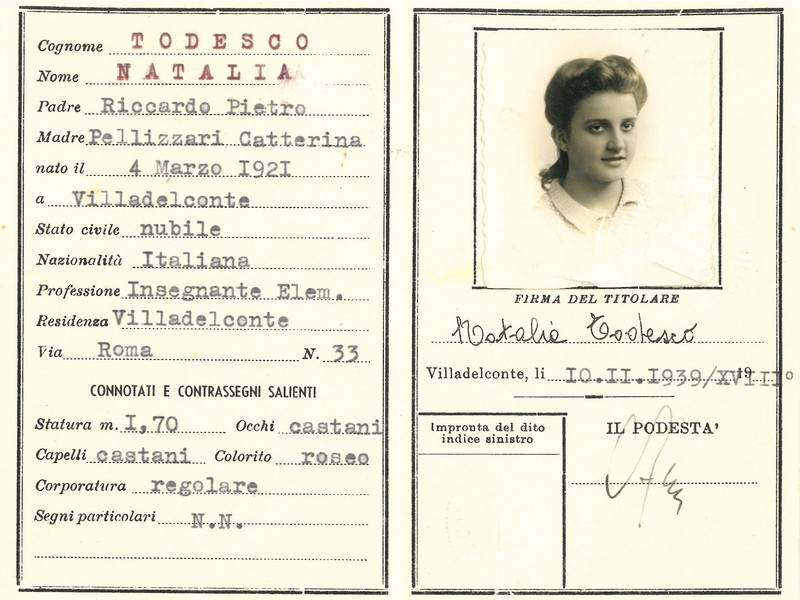 Cognome TODESCO
Nome NATALIA
Padre Riccardo Pietro
Madre Pellizzari Catterina
nato il 4 Marzo I92I
a Villadelconte
Stato civile nubile
Nazionalità Italiana
Professione Insegnante Elem.
Residenza Villadelconte
Via Roma N. 33
CONNOTATI E CONTRASSEGNI SALIENTI
Statura m. I,70 Occhi castani
Capelli castani Colorito roseo
Corporatura regolare
Segni particolari N.N.
FIRMA DEL TITOLARE
Natalia Todesco
Villadelconte, li IO.II.I939/XVIII° 19
Impronta del dito
indice sinistro
IL PODESTA'